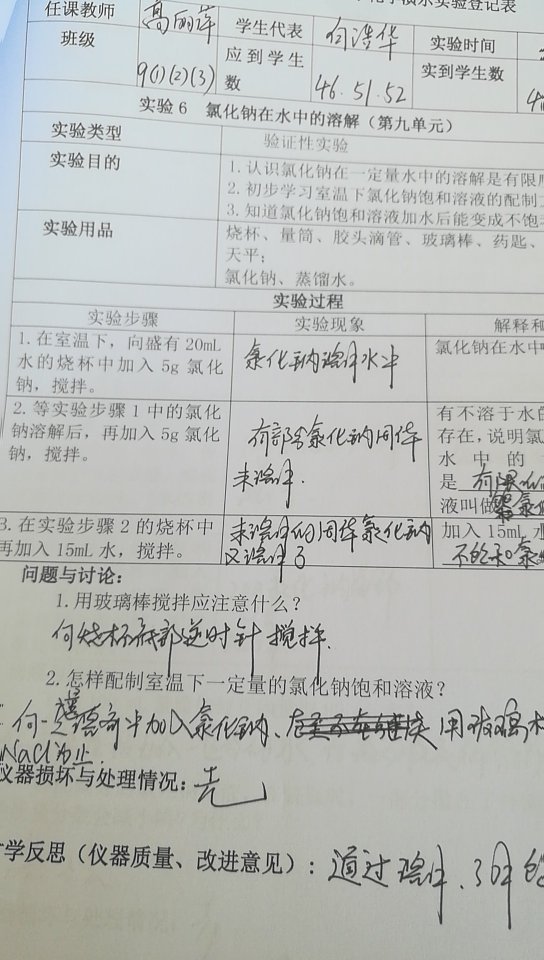 学实验登记表
任课教师 高丽萍 学生代表 何浩华 实验时间
班级 9(1)(2)(3) 应到学生数 46.51.52 实到学生数
实验6 氯化钠在水中的溶解（第九单元）
实验类型 验证性实验
实验目的 1.认识氯化钠在一定量水中的溶解是有限
2.初步学习室温下氯化钠饱和溶液的配制
3.知道氯化钠饱和溶液加水后能变成不饱
实验用品 烧杯、量筒、胶头滴管、玻璃棒、药匙、
天平；
氯化钠、蒸馏水。
实验过程
实验步骤 实验现象 解释和
1.在室温下，向盛有20mL
水的烧杯中加入5g氯化
钠，搅拌。
氯化钠溶于水中
氯化钠在水中
2.等实验步骤1中的氯化
钠溶解后，再加入5g氯化
钠，搅拌。
有部分氯化钠固体
未溶解.
有不溶于水
存在，说明氯
水中的
是 有限
液叫做
3.在实验步骤2的烧杯中
再加入15mL水，搅拌。
未溶解的固体氯化钠
又溶解了
加入15mL水
不饱和氯
问题与讨论：
1.用玻璃棒搅拌应注意什么？
向烧杯底部逆时针搅拌.
2.怎样配制室温下一定量的氯化钠饱和溶液？
向一定 中加入氯化钠、用玻璃
NaCl 为止.
仪器损坏与处理情况：无
学反思（仪器质量、改进意见）：通过溶解、